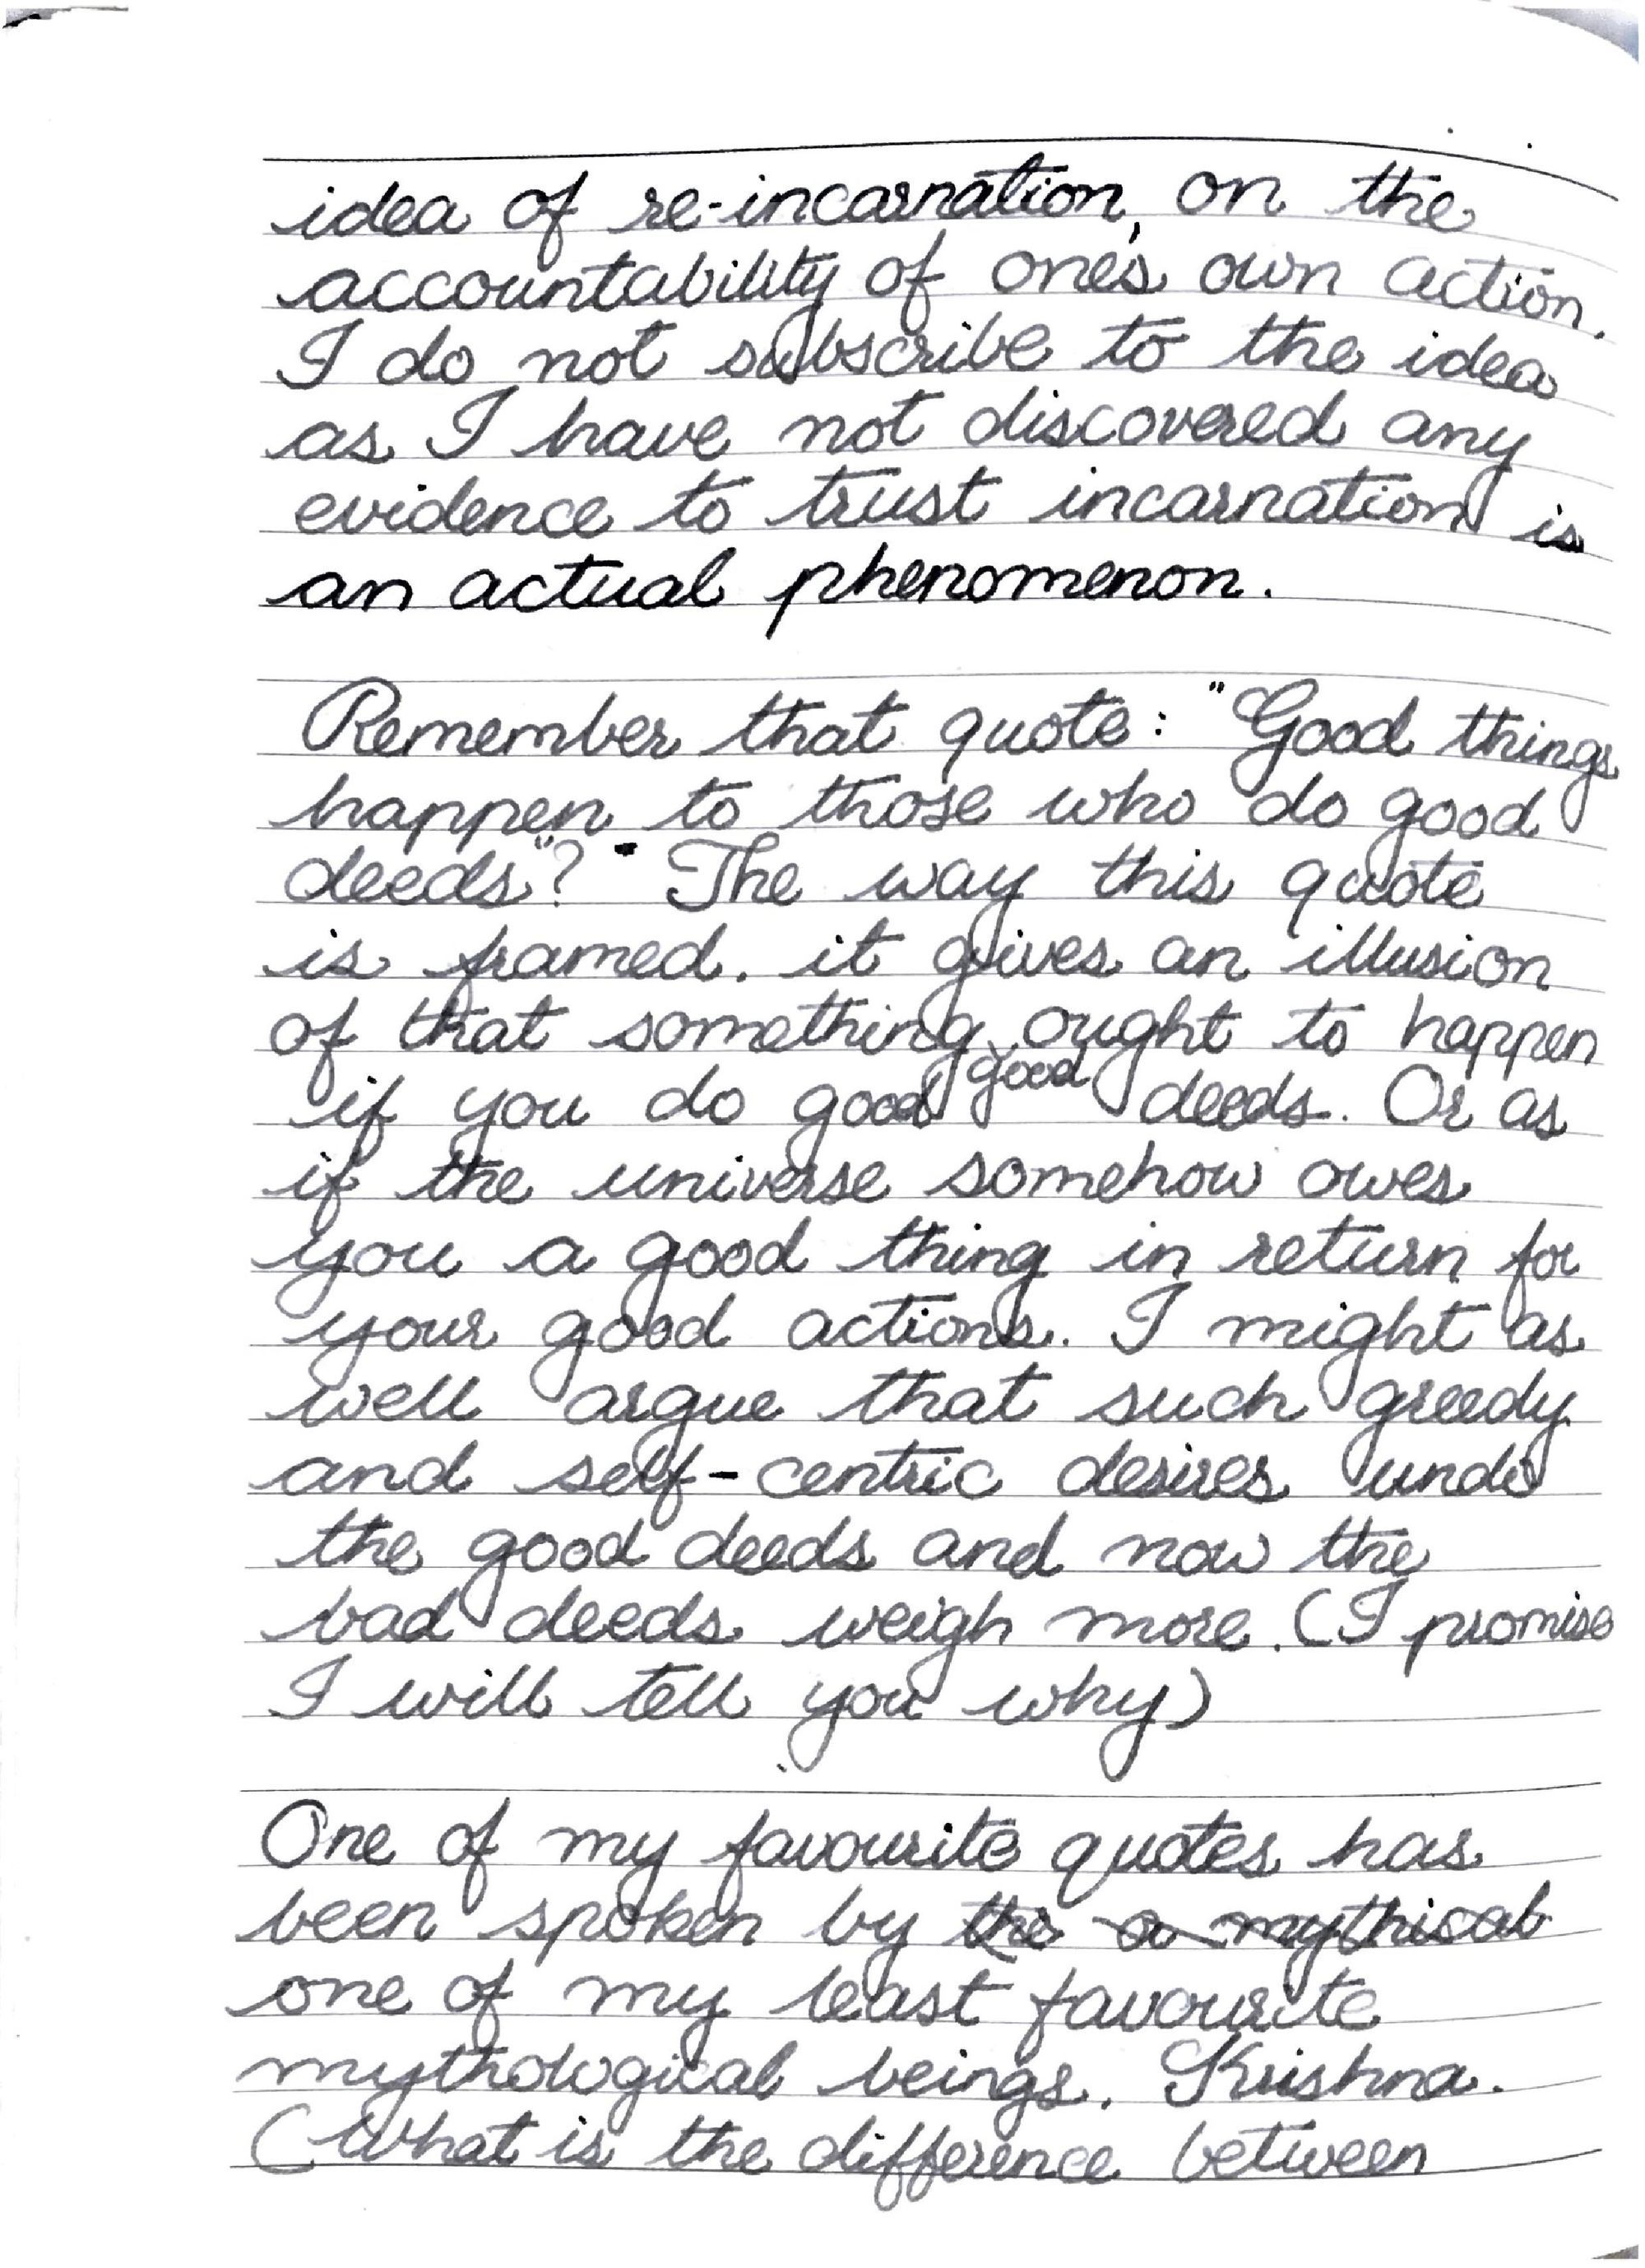 idea of re-incarnation, on the
accountability of one's own action.
I do not subscribe to the idea
as I have not discovered any
evidence to trust incarnation is
an actual phenomenon.
Remember that quote: "Good things
happen to those who do good
deeds"? The way this quote
is framed, it gives an illusion
of that something good ought to happen
if you do good deeds. Or as
if the universe somehow owes
you a good thing in return for
your good actions. I might as
well argue that such greedy
and self-centric desires undo
the good deeds and now the
bad deeds weigh more. (I promise
I will tell you why)
One of my favourite quotes has
been spoken by the a mythical
one of my least favourite
mythological beings, Krishna.
(What is the difference between